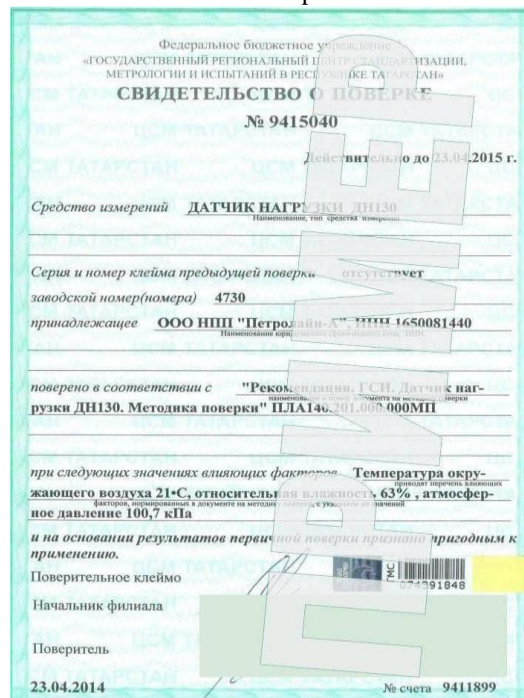 Федеральное бюджетное учреждение
«ГОСУДАРСТВЕННЫЙ РЕГИОНАЛЬНЫЙ ЦЕНТР СТАНДАРТИЗАЦИИ,
МЕТРОЛОГИИ И ИСПЫТАНИЙ В РЕСПУБЛИКЕ ТАТАРСТАН»
СВИДЕТЕЛЬСТВО О ПОВЕРКЕ
№ 9415040
Действительно до 23.04.2015 г.
Средство измерений ДАТЧИК НАГРУЗКИ ДН130
Наименование, тип средства измерений
Серия и номер клейма предыдущей поверки отсутствует
заводской номер(номера) 4730
принадлежащее ООО НПП "Петролайн-А", ИНН 1650081440
Наименование юридического (физического) лица, ИНН
поверено в соответствии с "Рекомендация. ГСИ. Датчик наг-
наименование и номер документа на методику поверки
рузки ДН130. Методика поверки" ПЛА146.201.000.000МП
при следующих значениях влияющих факторов Температура окру-
приводят перечень влияющих
жающего воздуха 21•С, относительная влажность 63% , атмосфер-
факторов, нормированных в документе на методику поверки, с указанием их значений
ное давление 100,7 кПа
и на основании результатов первичной поверки признано пригодным к
применению.
Поверительное клеймо
ГМС
074391848
Начальник филиала
Поверитель
23.04.2014
№ счета 9411899
ПРИМЕР
ЦСМ ТАТАРСТАН